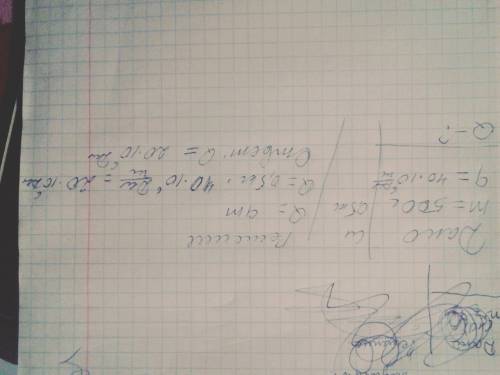 Дано
m = 500г
q = 40·10⁶ Дж/кг
Q - ?
СИ
0,5кг
Решение
Q = qm
Q = 0,5кг · 40·10⁶ Дж/кг = 20·10⁶ Дж
Ответ: Q = 20·10⁶ Дж